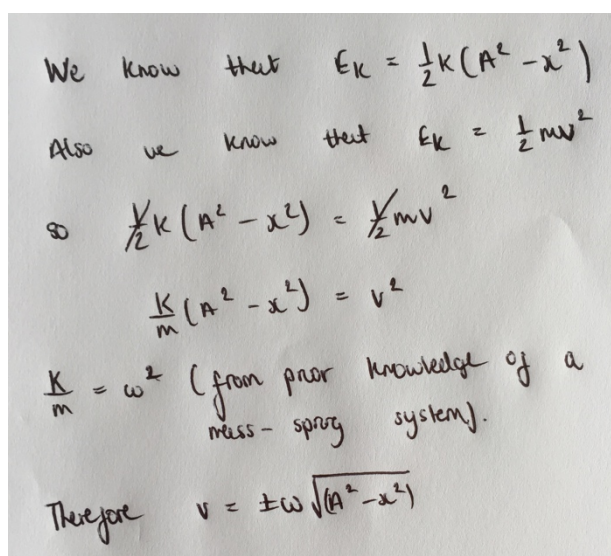 We know that EK = 1/2 K(A² - x²)
Also we know that EK = 1/2 mv²
so 1/2 K(A² - x²) = 1/2 mv²
K/m (A² - x²) = v²
K/m = ω² (from prior knowledge of a
mass-spring system).
Therefore v = ±ω√(A² - x²)